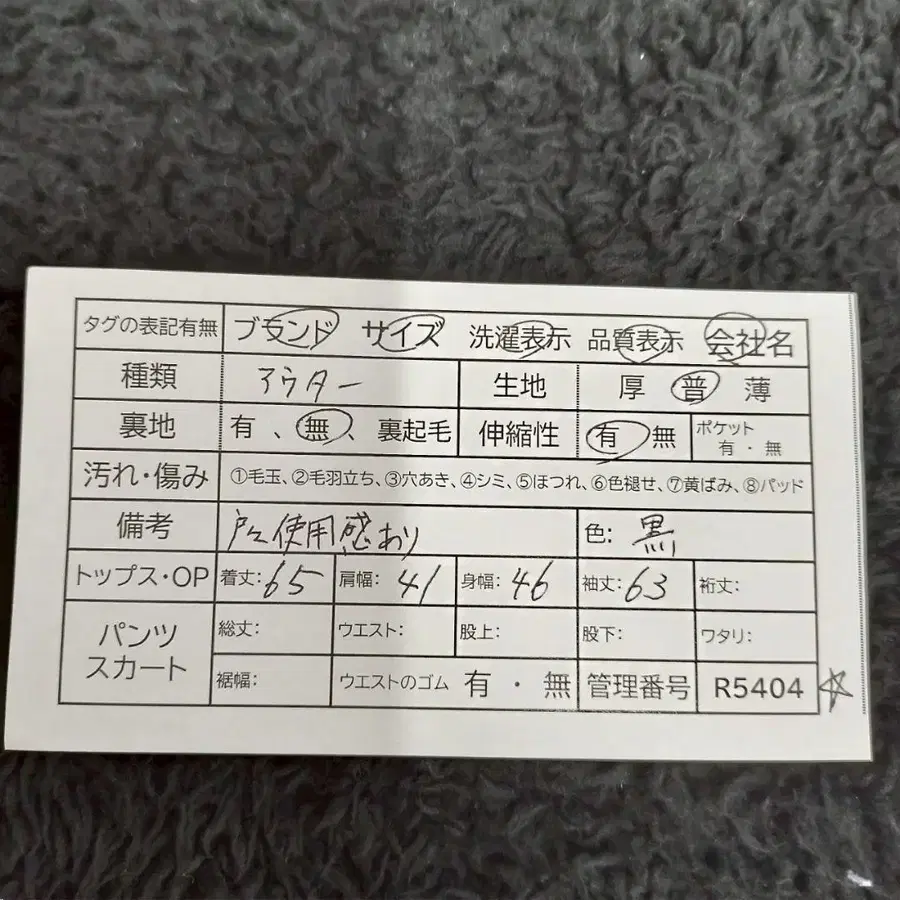 タグの表記有無 ブランド サイズ 洗濯表示 品質表示 会社名
種類 アウター 生地 厚 普 薄
裏地 有 、無、裏起毛 伸縮性 有 無 ポケット 有・無
汚れ・傷み ①毛玉、②毛羽立ち、③穴あき、④シミ、⑤ほつれ、⑥色褪せ、⑦黄ばみ、⑧パッド
備考 使用感あり 色: 黒
トップス・OP 着丈:65 肩幅:41 身幅:46 袖丈:63 裄丈:
パンツ スカート 総丈: ウエスト: 股上: 股下: ワタリ:
裾幅: ウエストのゴム 有・無 管理番号 R5404 ☆